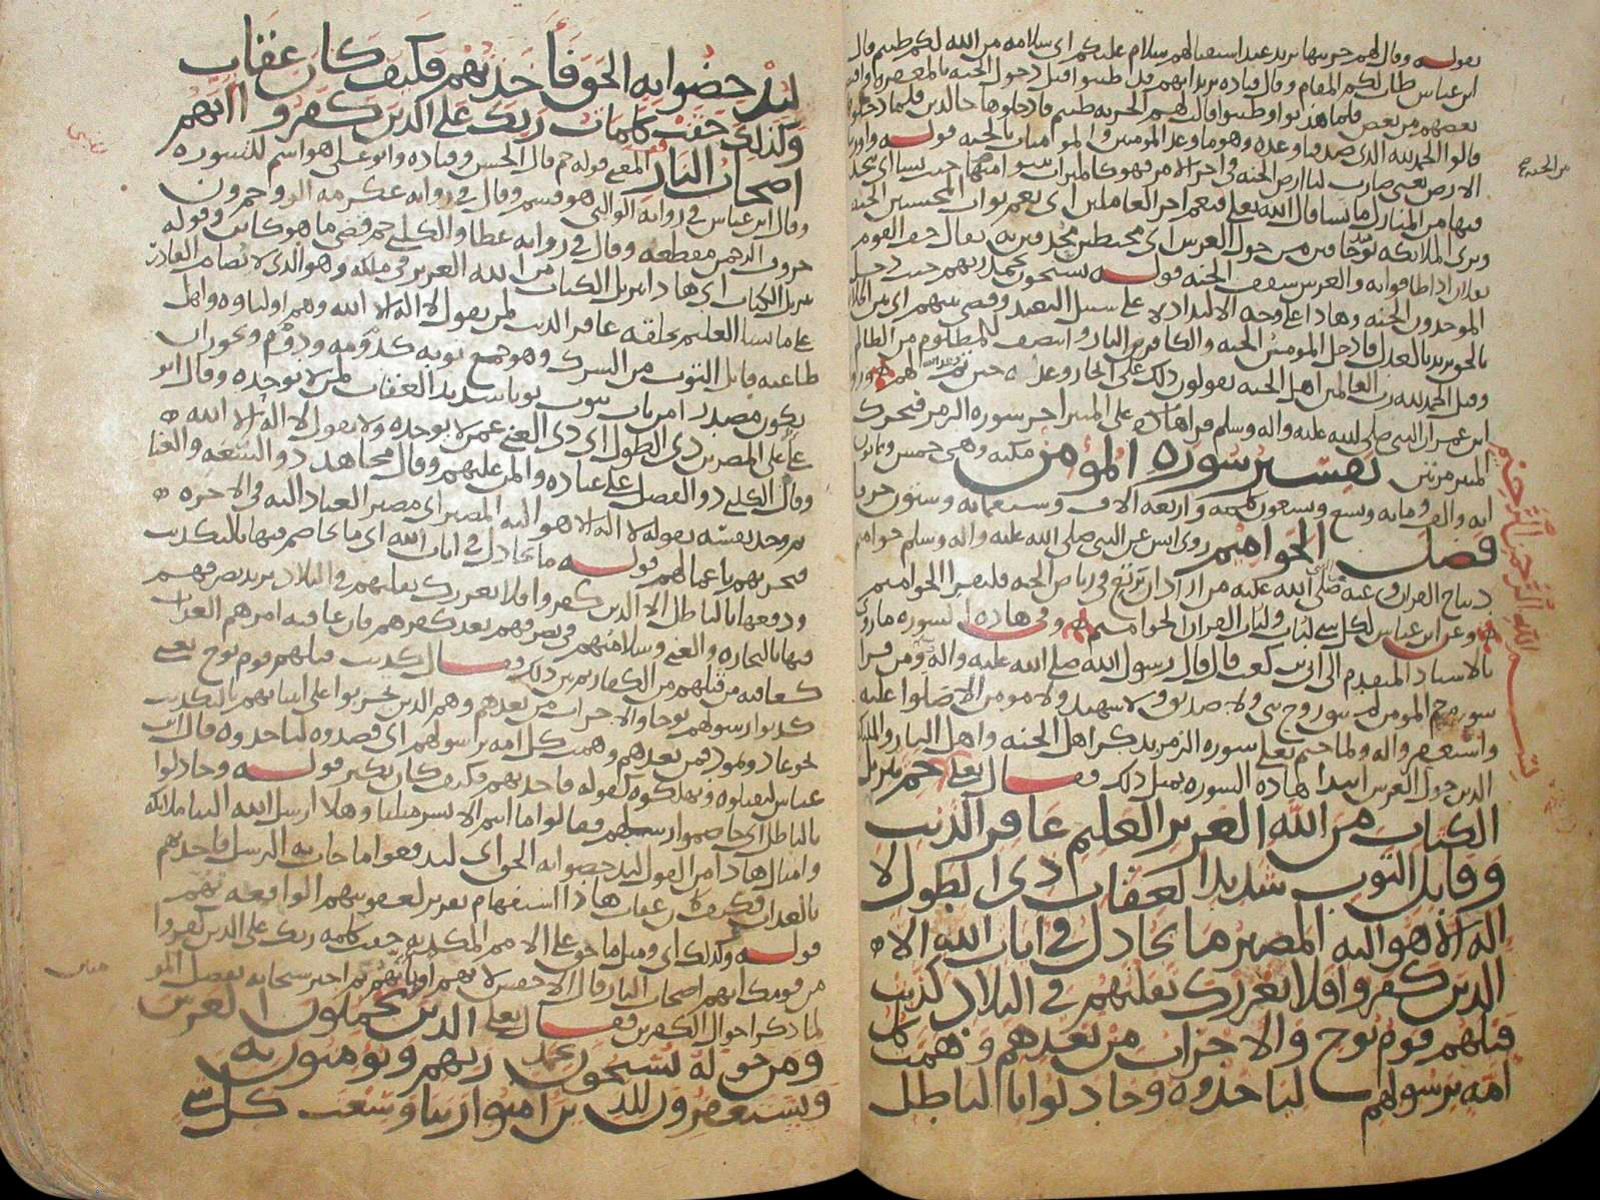 قوله وقال لهم خزنتها يريد عند استقبالهم سلام عليكم اي سلامه من الله لكم طبتم قال
ابن عباس طاب لكم المقام وقال قتاده يريد انهم قبل دخول الجنه
بعضهم من بعض فلما هذبوا وطيبوا قالت لهم الخزنه طبتم فادخلوها خالدين فلما دخلوا
قالوا الحمد لله الذي صدقنا وعده وهو ما وعد المومنين بالجنه قوله واورثنا
الارض يعني صارت لنا ارض الجنه في اخر الامر فهو كالميراث نتبوا منها حيث نشا اي نتخذ
فيها من المنازل ما نشا قال الله تعلى فنعم اجر العاملين اي نعم ثواب المحسنين الجنه
وترى الملائكه حافين من حول العرش اي محيطين محدقين به يقال حف القوم
بفلان اذا طافوا به والعرش سقف الجنه قوله يسبحون بحمد ربهم حيث دخل
الموحدون الجنه وهاذا على وجه الالتذاذ لا على سبيل التعبد وقضي بينهم اي بين الخلا
بالحق يريد بالعدل فادخل المومنين الجنه والكافرين النار وانتصف للمظلوم من الظالم
وقيل الحمد لله رب العالمين اهل الجنه يقولون ذلك على انجاز وعد الله لهم وروى
ابن عمر ان النبي صلى الله عليه واله وسلم قرا على المنبر اخر سوره الزمر فتحرك
المنبر مرتين تفسير سوره المؤمن مكيه وهي خمس وثمانون
ايه والف ومايه وتسع وتسعون كلمه واربعه الاف وتسعمايه وستون حرفا
فصل الحواميم روى انس عن النبي صلى الله عليه واله وسلم حواميم
ديباج القران وعنه صلى الله عليه من اراد ان يرتع في رياض الجنه فليقرا الحواميم
وعن ابن عباس لكل شي لباب ولباب القران الحواميم وفي هاذه السوره ما روي
بالاسناد المتقدم الى ابي بن كعب قال قال رسول الله صلى الله عليه واله ومن قرا
سوره حم المومن لم يبق روح نبي ولا صديق ولا شهيد ولا مومن الا صلوا عليه
واستغفروا له ولما ختم تعلى سوره الزمر بذكر اهل الجنه واهل النار والملائكه
الذين حول العرش ابتدا هاذه السوره بمثل ذلك فقال تعلى حم تنزيل
الكتاب من الله العزيز العليم غافر الذنب
وقابل التوب شديد العقاب ذي الطول لا
اله الا هو اليه المصير ما يجادل في ايات الله الا
الذين كفروا فلا يغررك تقلبهم في البلاد كذبت
قبلهم قوم نوح والاحزاب من بعدهم وهمت كل
امه برسولهم لياخذوه وجادلوا بالباطل
بسم الله الرحمن الرحيم
ليدحضوا به الحق فاخذتهم فكيف كان عقاب
وكذلك حقت كلمات ربك على الذين كفروا انهم
اصحاب النار المعنى قوله حم قال الحسن وقتاده وابو علي هو اسم للسوره
وقال ابن عباس في روايه الوالبي هو قسم وقال في روايه عكرمه الر وحم ون
حروف الرحمن مقطعه وقال في روايه عطا والكلبي حم قضي ما هو كاين وقوله
تنزيل الكتاب اي هاذا تنزيل الكتاب من الله العزيز في ملكه وهو الذي لا يضام القادر
على ما يشا العليم بخلقه غافر الذنب لمن يقول لا اله الا الله وهم اولياوه واهل
طاعته قابل التوب من الشرك وهو جمع توبه كدومه ودوم ويجوز ان
يكون مصدرا من تاب يتوب توبا شديد العقاب لمن لا يوحده وقال ابو
علي على المصرين ذي الطول اي ذي الغنى عمن لا يوحده ولا يقول لا اله الا الله
وقال الكلبي ذو الفضل على عباده والمن عليهم وقال مجاهد ذو السعه والغنا
ثم وحد نفسه بقوله لا اله الا هو اليه المصير اي مصير العباد اليه في الاخره
فيجزيهم باعمالهم قوله ما يجادل في ايات الله اي ما يخاصم فيها بالتكذيب
ودفعها بالباطل الا الذين كفروا فلا يغررك تقلبهم في البلاد يريد تصرفهم
فيها بالتجاره والغنى وسلامتهم في تصرفهم بعد كفرهم فان عاقبه امرهم العذاب
كعاقبه من قبلهم من الكفار ثم بين ذلك فقال كذبت قبلهم قوم نوح يعني
كذبوا رسولهم نوحا والاحزاب من بعدهم وهم الذين تحزبوا على انبيائهم بالتكذيب
نحو عاد وثمود فمن بعدهم وهمت كل امه برسولهم اي قصدوه لياخذوه قال ابن
عباس ليقتلوه ويهلكوه كقوله فاخذتهم فكيف كان نكير قوله وجادلوا
بالباطل اي خاصموا رسلهم فقالوا ما انتم الا بشر مثلنا وهلا ارسل الله الينا ملائكه
وامثال هاذا من القول ليدحضوا به الحق اي ليدفعوا ما جات به الرسل فاخذتهم
بالعذاب فكيف كان عقاب هاذا استفهام تقرير لعقوبتهم الواقعه بهم
قوله وكذلك اي ومثل ما حق على الامم المكذبه حقت كلمه ربك على الذين كفروا
من قومك انهم اصحاب النار قال الاخفش لانهم او بانهم ثم اخبر سبحانه بفضل المو
لما ذكر احوال الكفرين فقال تعلى الذين يحملون العرش
ومن حوله يسبحون بحمد ربهم ويومنون به
ويستغفرون للذين امنوا ربنا وسعت كل شي